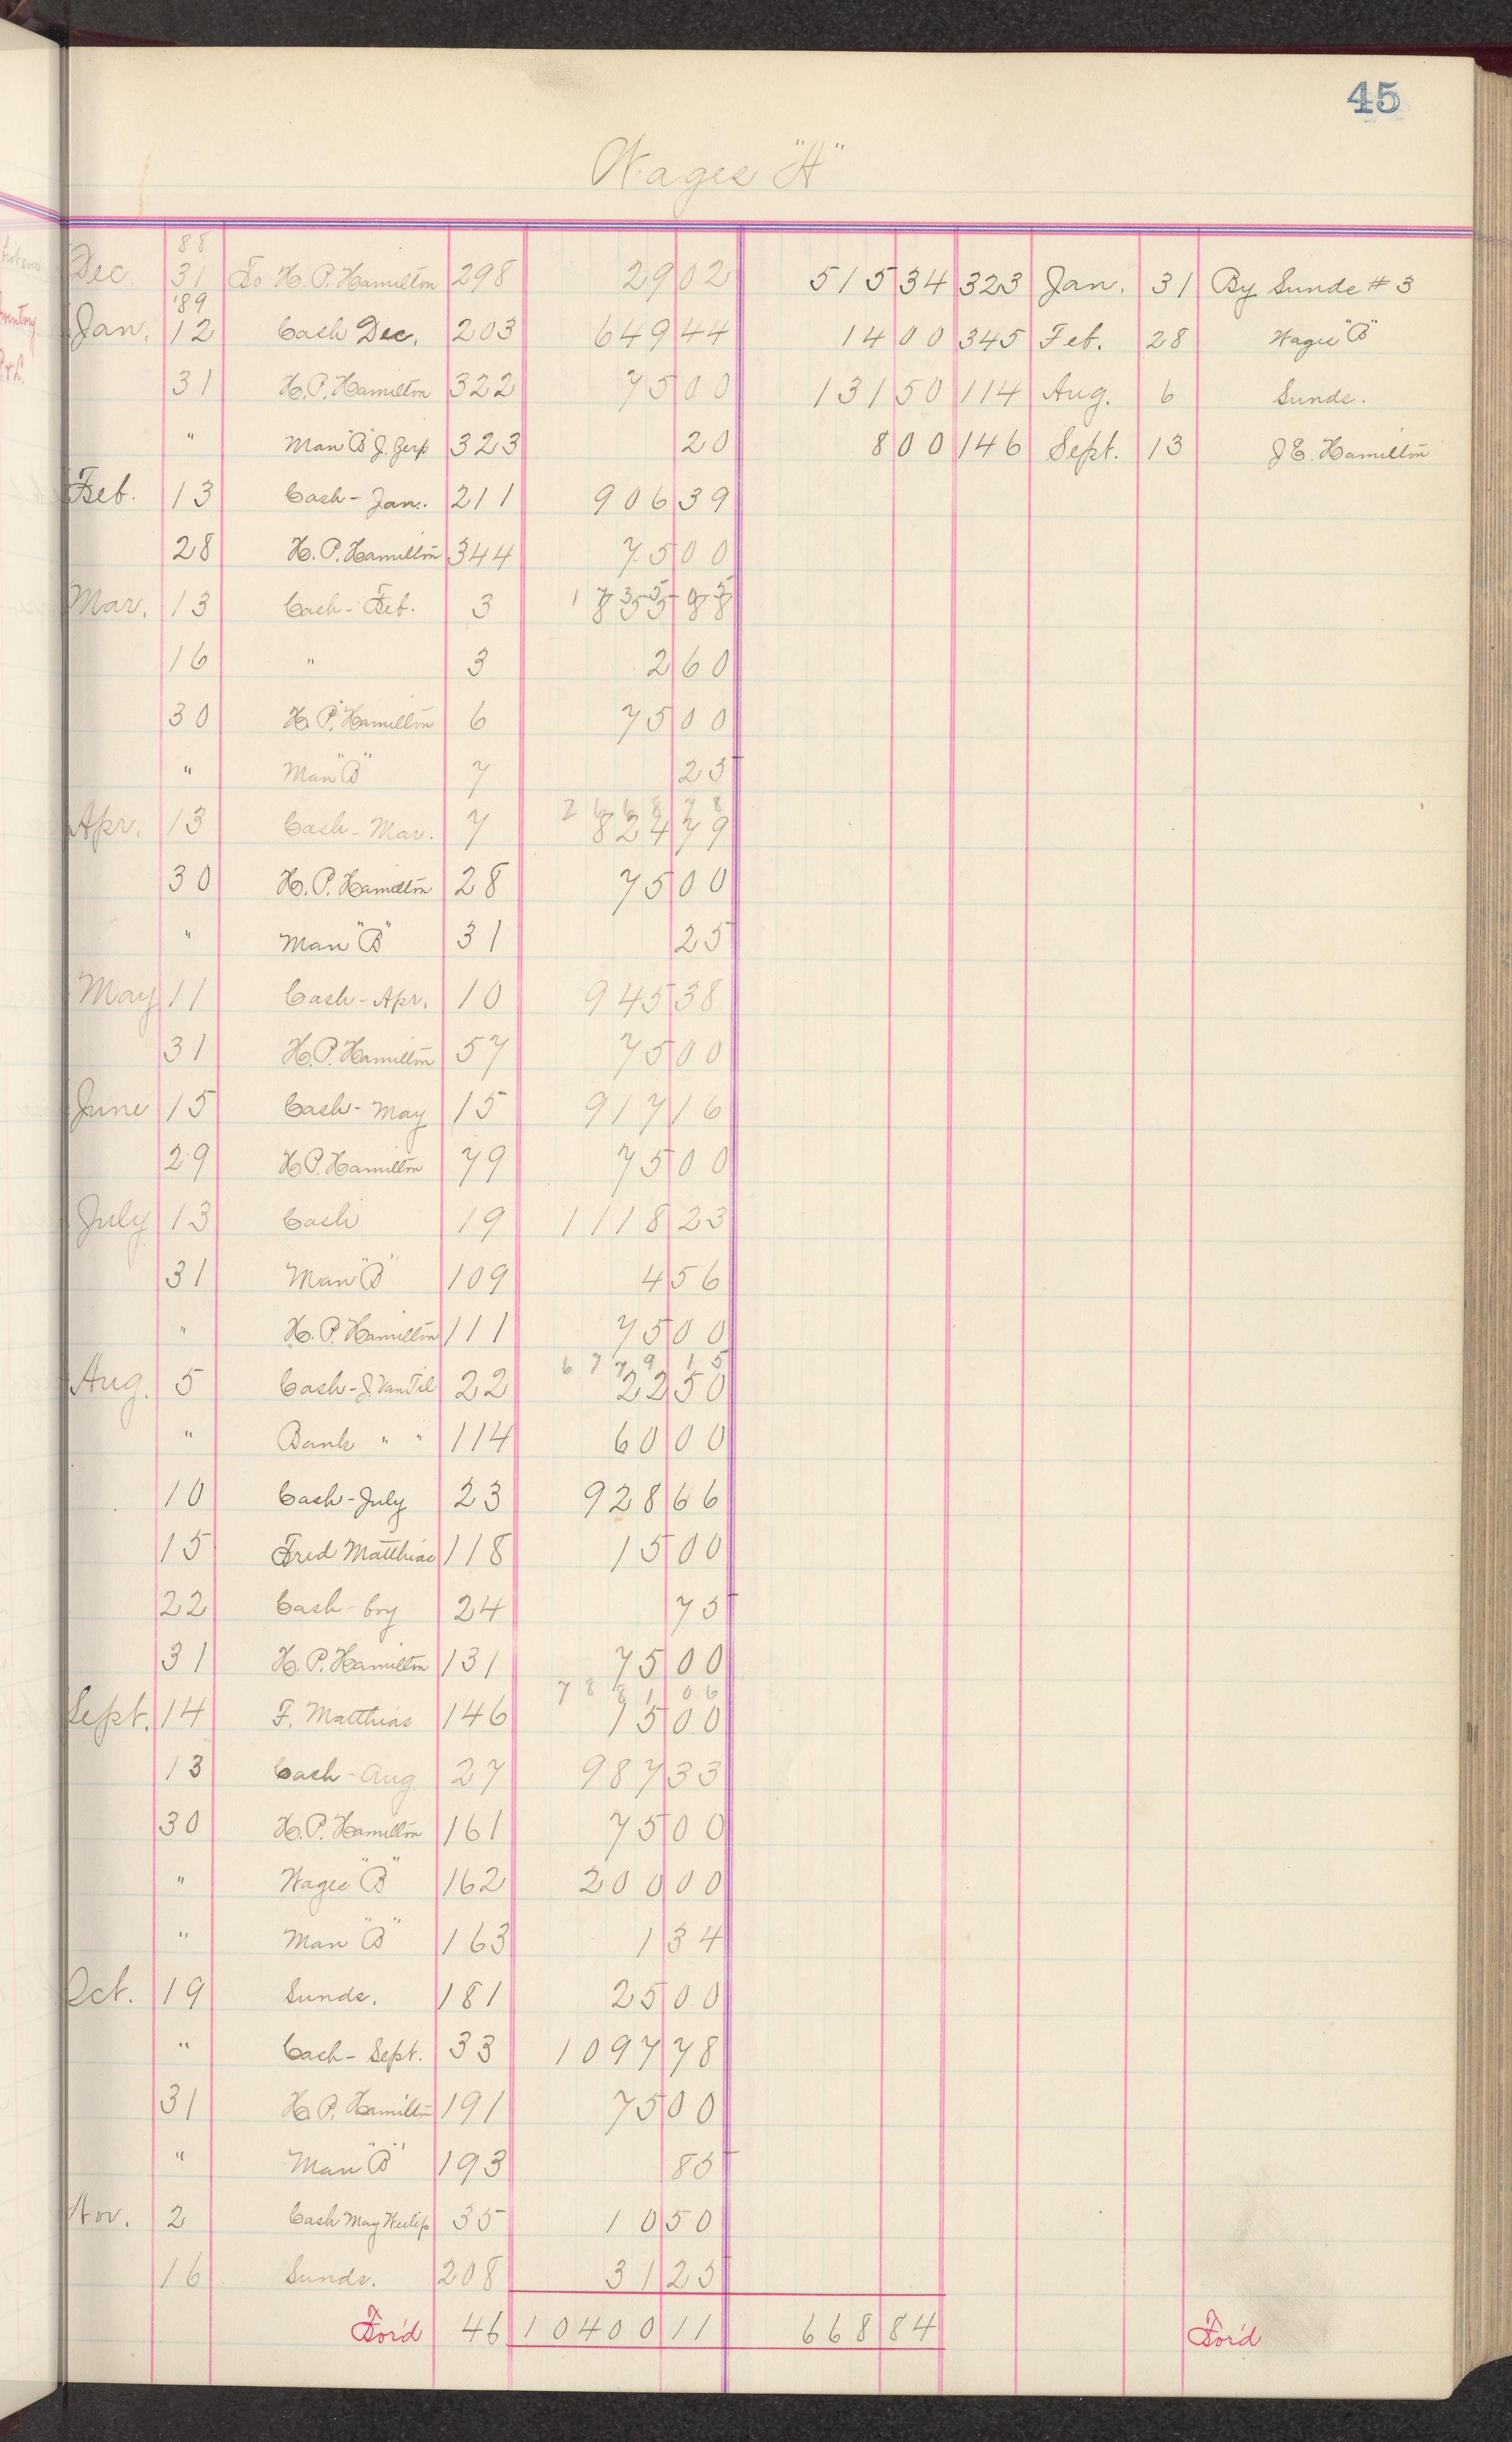 45
Wages "A"
88
Dec. 31 To H. P. Hamilton 298 29 02 515 34 323 Jan. 31 By Sunds # 3
'89
Jan. 12 Cash Dec. 203 649 44 14 00 345 Feb. 28 Wages "B"
31 H. P. Hamilton 322 75 00 131 50 114 Aug. 6 Sunds.
" Man "B" J. Zerp 323 20 8 00 146 Sept. 13 J E. Hamilton
Feb. 13 Cash - Jan. 211 906 39
28 H. P. Hamilton 344 75 00
Mar. 13 Cash - Feb. 3 855 88
16 " 3 2 60
30 H. P. Hamilton 6 75 00
" Man "B" 7 25
2 6 6 8 7 8
Apr. 13 Cash - Mar. 7 824 79
30 H. P. Hamilton 28 75 00
" Man "B" 31 25
May 11 Cash - Apr. 10 945 38
31 H. P. Hamilton 57 75 00
June 15 Cash - May 15 917 16
29 H P. Hamilton 79 75 00
July 13 Cash 19 1118 23
31 Man "B" 109 4 56
" H. P. Hamilton 111 75 00
6 7 7 9 1 5
Aug. 5 Cash - J. Van Til 22 22 50
" Bank " " 114 60 00
10 Cash - July 23 928 66
15 Fred Matthias 118 15 00
22 Cash - boy 24 75
31 H. P. Hamilton 131 75 00
7 8 8 1 0 6
Sept. 14 F. Matthias 146 15 00
13 Cash - Aug 27 987 33
30 H. P. Hamilton 161 75 00
" Wages "B" 162 200 00
" Man "B" 163 1 34
Oct. 19 Sunds. 181 25 00
" Cash - Sept. 33 1097 78
31 H. P. Hamilton 191 75 00
" Man "B" 193 85
Nov. 2 Cash May 35 10 50
16 Sunds. 208 31 25
For'd 46 10400 11 668 84 For'd